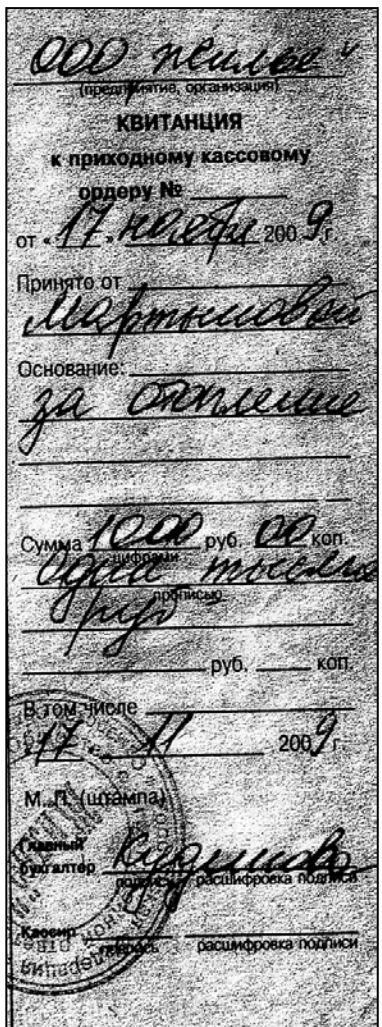 ООО жилье"
(предприятие, организация)
КВИТАНЦИЯ
к приходному кассовому
ордеру №
от «17» ноября 2009 г.
Принято от
Мартыновой
Основание:
за отопление
Сумма 1000 руб. 00 коп.
цифрами
одна тысяча
прописью
руб
руб. коп.
В том числе
17 11 2009 г.
М. П. (штампа)
Главный
бухгалтер
подпись расшифровка подписи
Кассир
подпись расшифровка подписи